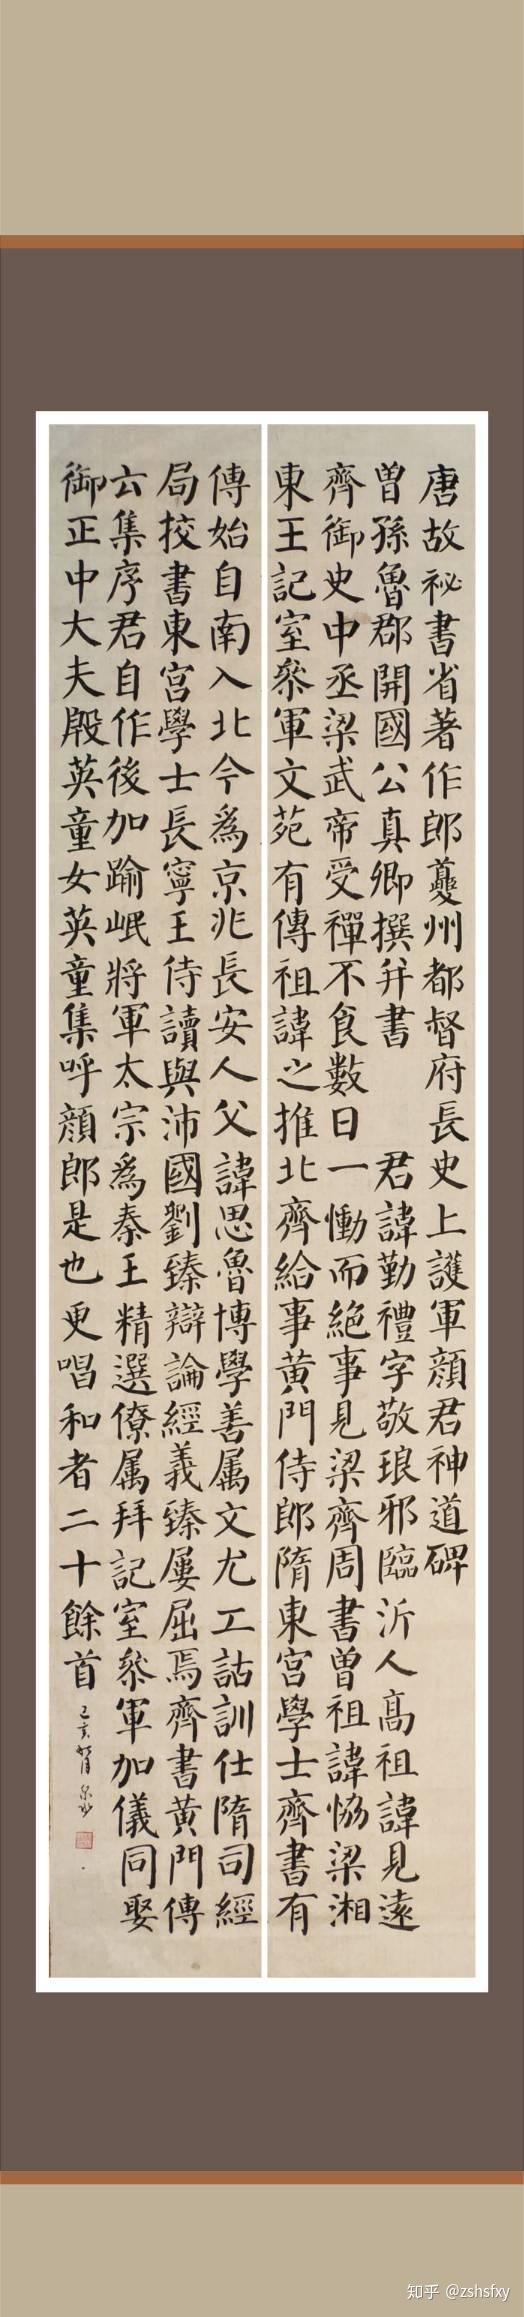 唐故祕書省著作郎夔州都督府長史上護軍顔君神道碑
曾孫魯郡開國公真卿撰并書　君諱勤禮字敬琅邪臨沂人高祖諱見遠
齊御史中丞梁武帝受禪不食數日一慟而絶事見梁齊周書曾祖諱恊梁湘
東王記室叅軍文苑有傳祖諱之推北齊給事黄門侍郎隋東宮學士齊書有
傳始自南入北今爲京兆長安人父諱思魯博學善属文尤工詁訓仕隋司經
局挍書東宮學士長寧王侍讀與沛國劉臻辯論經義臻屢屈焉齊書黄門傳
云集序君自作後加踰岷將軍太宗爲秦王精選僚属拜記室叅軍加儀同娶
御正中大夫殷英童女英童集呼顔郎是也更唱和者二十餘首
己亥
知乎 @zshsfxy